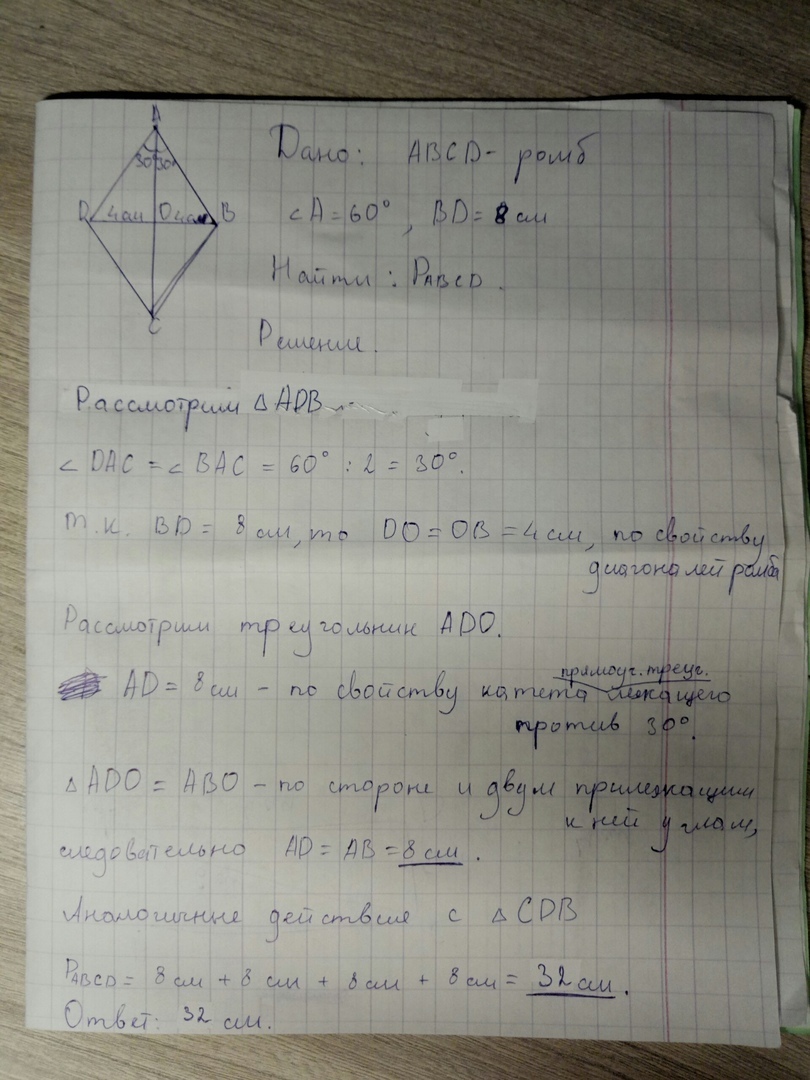 A
30° 30°
D 4 см O 4 см B
C
Дано: ABCD - ромб
∠A = 60°, BD = 8 см
Найти: PABCD.
Решение.
Рассмотрим △ ADB
∠ DAC = ∠ BAC = 60° : 2 = 30°.
т.к. BD = 8 см, то DO = OB = 4 см, по свойству
диагоналей ромба
Рассмотрим треугольник ADO.
прямоуг. треуг.
AD = 8 см - по свойству катета лежащего
против 30°.
△ ADO = ABO - по стороне и двум прилежащим
к ней углам,
следовательно AD = AB = 8 см.
Аналогичные действия с △ CDB
PABCD = 8 см + 8 см + 8 см + 8 см = 32 см.
Ответ: 32 см.